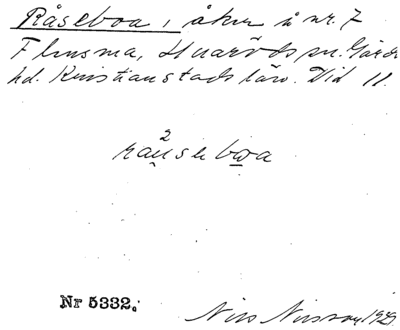 Råseboa, åker å nr. 7
Flensma, Hvaröds sn. Gärds
hd. Kristianstads län. Did 11.
2
räuseboa
Nr 5332.
Nils Nilsson 1929